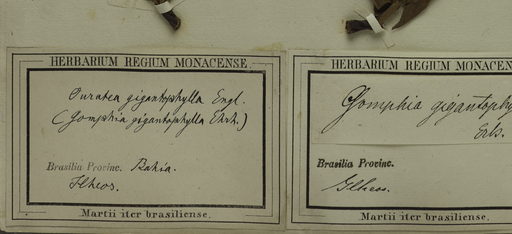 HERBARIUM REGIUM MONACENSE.
Ouratea gigantophylla Engl.
(Gomphia gigantophylla Erh.)
Brasilia Provinc. Bahia.
Ilheos.
Martii iter brasiliense.
HERBARIUM REGIUM MONACENSE
Gomphia gigantophy
Brasilia Provinc.
Ilheos.
Martii iter brasiliense.